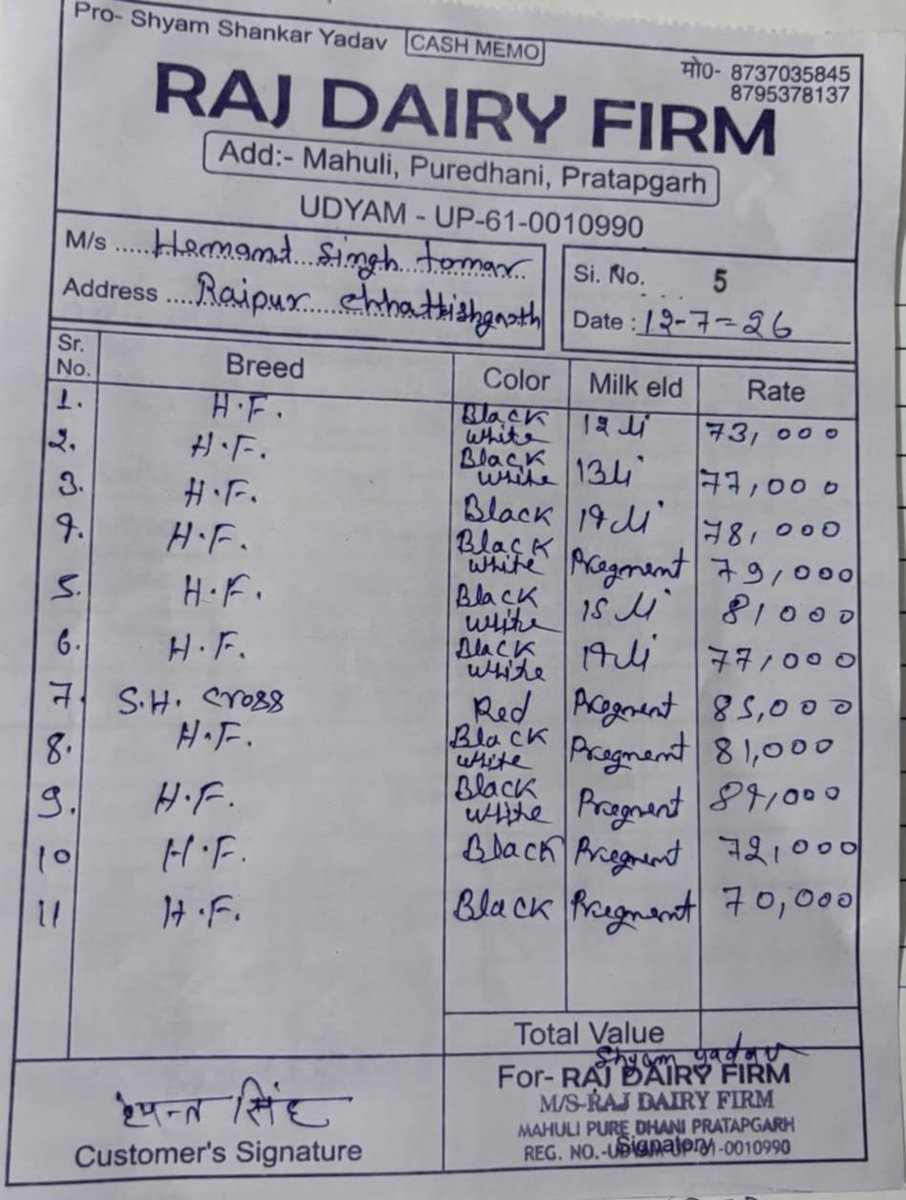 Pro- Shyam Shankar Yadav CASH MEMO
मो0- 8737035845
8795378137
RAJ DAIRY FIRM
Add:- Mahuli, Puredhani, Pratapgarh
UDYAM - UP-61-0010990
M/s Hemant Singh tomar
Address Raipur chhattishgarh
Si. No. 5
Date : 12-7-26
Sr. No. Breed Color Milk eld Rate
1. H.F. Black white 12 Li 73,000
2. H.F. Black white 13 Li 77,000
3. H.F. Black 14 Li 78,000
4. H.F. Black white Pregment 79,000
5. H.F. Black white 15 Li 81000
6. H.F. Black white 14 Li 77,000
7. S.H. cross Red Pregnent 85,000
8. H.F. Black white Pregment 81,000
9. H.F. Black white Pregnent 84,000
10 H.F. Black Pregment 72,000
11 H.F. Black Pregment 70,000
Total Value
Shyam yadav
For- RAJ DAIRY FIRM
M/S-RAJ DAIRY FIRM
MAHULI PURE DHANI PRATAPGARH
Signatory
REG. NO.-UDYAM-UP-61-0010990
हेमन्त सिंह
Customer's Signature